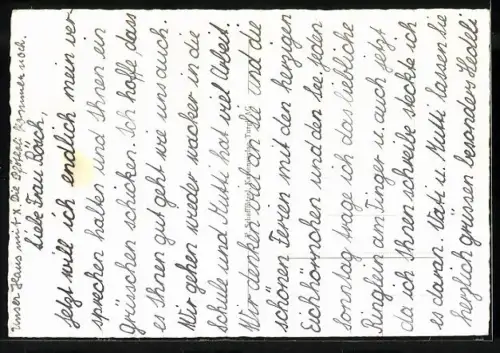 unser Haus mit X. Die Post kommt noch.
Liebe Frau Räich,
Jetzt will ich endlich mein ver
sprechen halten und Ihnen ein
Grüsschen schicken. Ich hoffe dass
es Ihnen gut geht wie uns auch.
Wir gehen wieder wacker in die
Schule und Mutti hat viel Arbeit.
Wir denken viel an Sie und die
schönen Ferien mit den herzigen
Eichhörnchen und den See. jeden
Sonntag trage ich das liebliche
Ringlein am Finger u. auch jetzt
da ich Ihnen schreibe steckte ich
es daran. Vati u. Mutti lassen Sie
herzlich grüssen besonders Hedeli